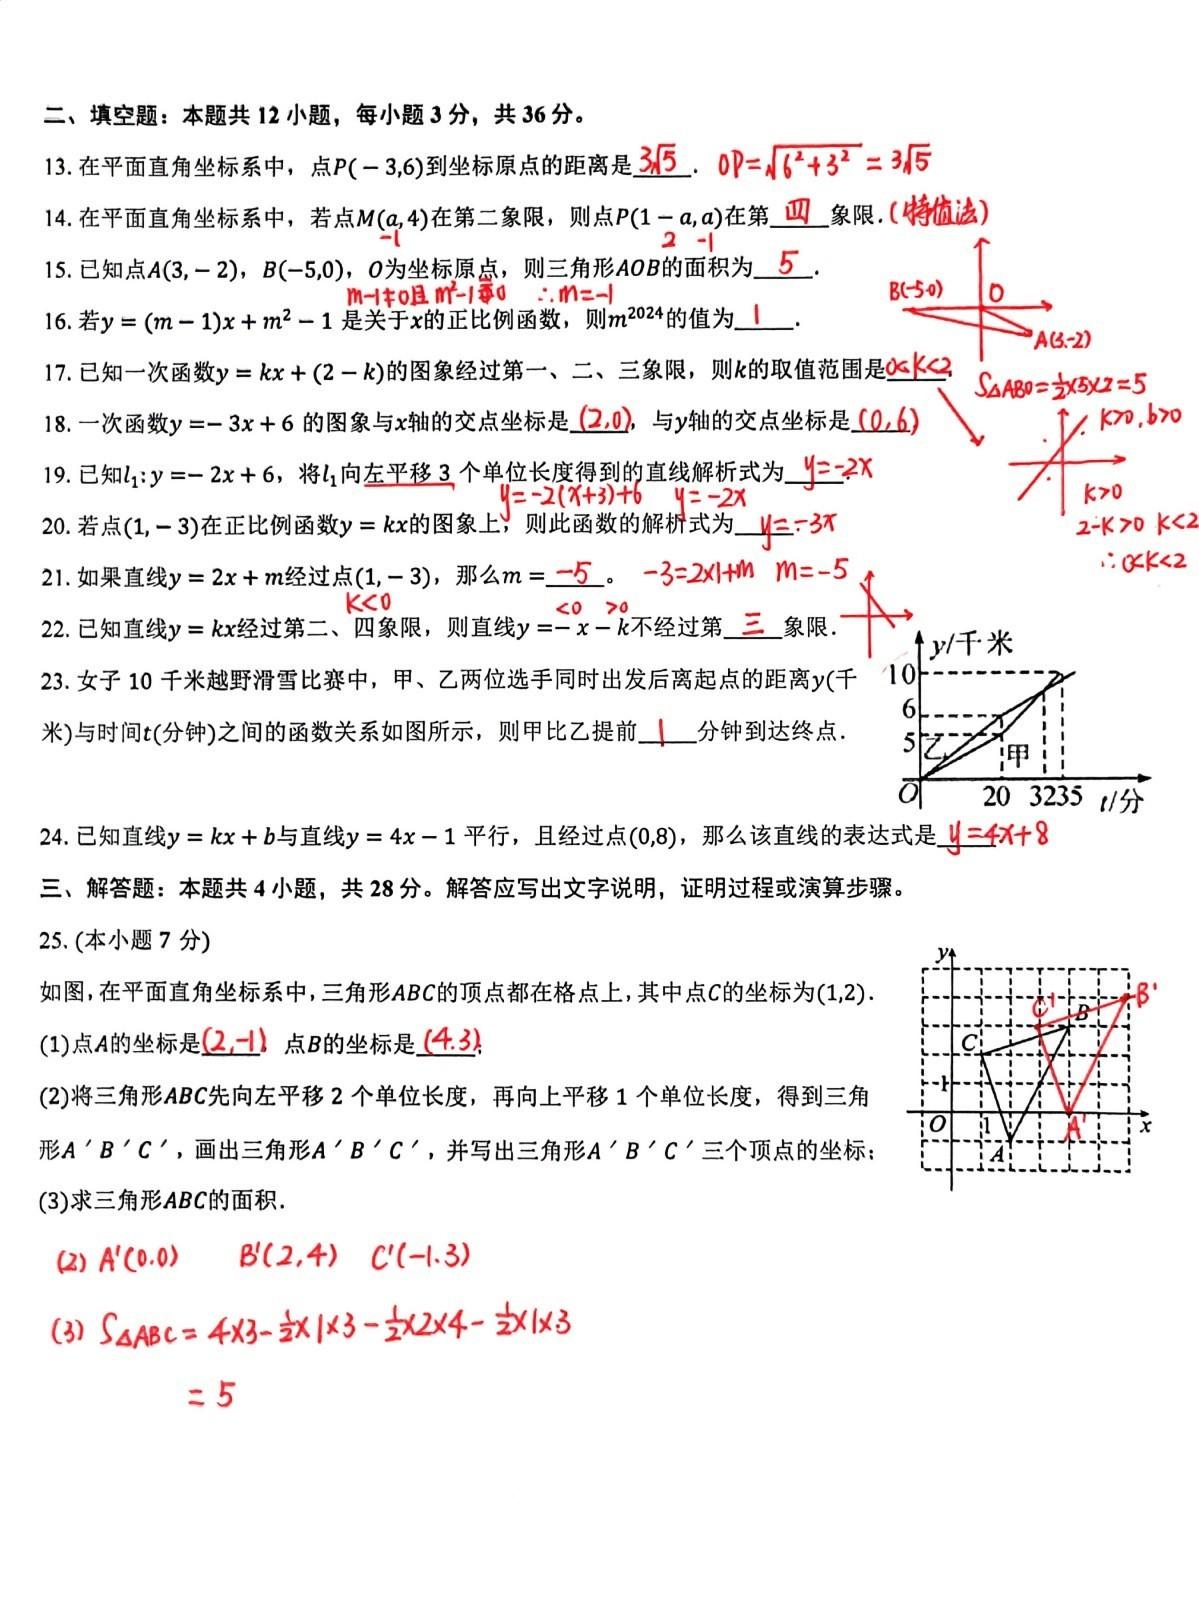 二、填空题：本题共 12 小题，每小题 3 分，共 36 分。
13. 在平面直角坐标系中，点P(－3,6)到坐标原点的距离是 3√5 . OP=√(6²+3²) = 3√5
14. 在平面直角坐标系中，若点M(a,4)在第二象限，则点P(1－a,a)在第 四 象限.(特值法)
-1 2 -1
15. 已知点A(3,－2)，B(−5,0)，O为坐标原点，则三角形AOB的面积为 5 .
B(-5.0) O
A(3.-2)
S△ABO=½×5×2=5
m-1≠0且 m²-1=0 ∴m=-1
16. 若y = (m − 1)x + m² − 1 是关于x的正比例函数，则m²⁰²⁴的值为 1 .
17. 已知一次函数y = kx + (2 − k)的图象经过第一、二、三象限，则k的取值范围是 0<k<2 .
k>0, b>0
k>0
2-k>0 k<2
∴0<k<2
18. 一次函数y =− 3x + 6 的图象与x轴的交点坐标是 (2,0)，与y轴的交点坐标是 (0,6)
19. 已知l₁: y =− 2x + 6，将l₁向左平移 3 个单位长度得到的直线解析式为 y=-2x .
y=-2(x+3)+6 y=-2x
20. 若点(1,−3)在正比例函数y = kx的图象上，则此函数的解析式为 y=-3x .
21. 如果直线y = 2x + m经过点(1,−3)，那么m = -5 。 -3=2×1+m m=-5
k<0 <0 >0
22. 已知直线y = kx经过第二、四象限，则直线y =− x − k不经过第 三 象限.
23. 女子 10 千米越野滑雪比赛中，甲、乙两位选手同时出发后离起点的距离y(千
米)与时间t(分钟)之间的函数关系如图所示，则甲比乙提前 1 分钟到达终点.
y/千米
10
6
5
乙
甲
O 20 3235 t/分
24. 已知直线y = kx + b与直线y = 4x − 1 平行，且经过点(0,8)，那么该直线的表达式是 y=4x+8
三、解答题：本题共 4 小题，共 28 分。解答应写出文字说明，证明过程或演算步骤。
25. (本小题 7 分)
如图,在平面直角坐标系中,三角形ABC的顶点都在格点上,其中点C的坐标为(1,2).
(1)点A的坐标是 (2,-1)，点B的坐标是 (4.3);
(2)将三角形ABC先向左平移 2 个单位长度，再向上平移 1 个单位长度，得到三角
形A′B′C′，画出三角形A′B′C′，并写出三角形A′B′C′三个顶点的坐标;
(3)求三角形ABC的面积.
y
B'
C' B
C
1
O 1 A' x
A
(2) A'(0.0) B'(2,4) C'(-1.3)
(3) S△ABC = 4×3-½×1×3-½×2×4-½×1×3
= 5